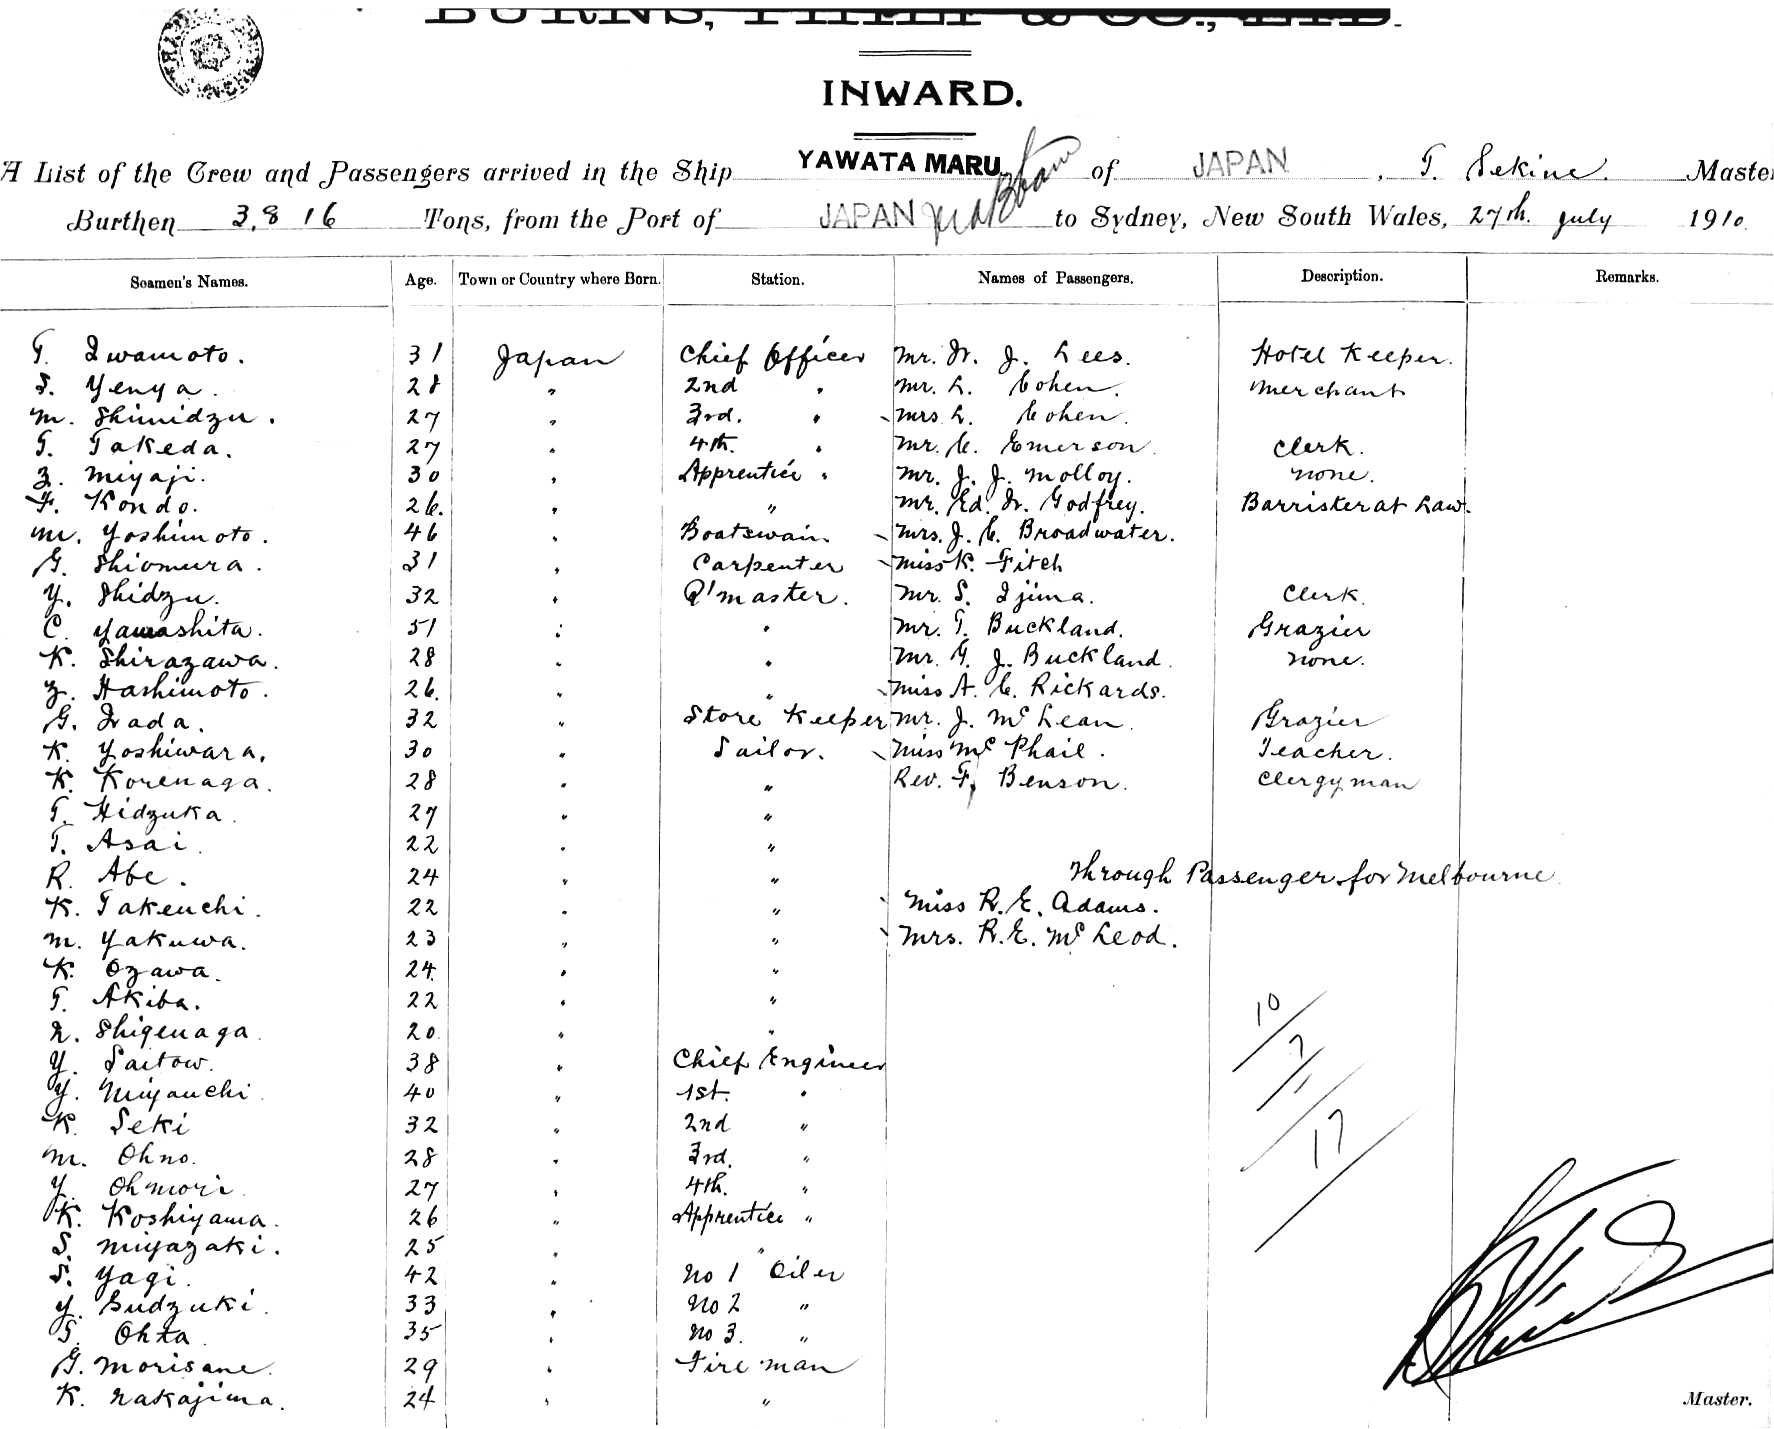 BURNS, PHILP & CO., LTD.
INWARD.
A List of the Crew and Passengers arrived in the Ship YAWATA MARU of JAPAN, T. Sekine. Master
Burthen 3,816 Tons, from the Port of JAPAN to Sydney, New South Wales, 27th. July 1910.
Seamen's Names. Age. Town or Country where Born. Station. Names of Passengers. Description. Remarks.
T. Iwamoto. 31 Japan Chief Officer Mr. W. J. Lees. Hotel Keeper.
S. Yenya. 28 " 2nd " Mr. L. Cohen. Merchant
M. Shimidzu. 27 " 3rd. " Mrs L. Cohen.
T. Takeda. 27 " 4th. " Mr. C. Emerson Clerk.
Z. Miyaji. 30 " Apprentice " Mr. J. J. Molloy. None.
F. Kondo. 26. " " Mr. Ed. W. Godfrey. Barrister at Law.
M. Yoshimoto. 46 " Boatswain Mrs. J. C. Broadwater.
G. Shiomura. 31 " Carpenter Miss K. Fitch
Y. Shidzu. 32 " Q'master. Mr. S. Ijima. Clerk.
C. Yamashita. 51 " " Mr. T. Buckland. Grazier
K. Shirazawa. 28 " " Mr. G. J. Buckland. None.
Z. Hashimoto. 26. " " Miss A. C. Rickards.
G. Wada. 32 " Store Keeper Mr. J. McLean. Grazier
K. Yoshiwara. 30 " Sailor. Miss McPhail. Teacher.
K. Korenaga. 28 " " Rev. F. Benson. Clergyman
T. Hidzuka. 27 " "
T. Asai. 22 " "
R. Abe. 24 " " Through Passenger for Melbourne
K. Takeuchi. 22 " " Miss R. E. Adams.
M. Yakuwa. 23 " " Mrs. R. E. McLeod.
K. Ozawa. 24. " "
T. Akiba. 22 " "
N. Shigenaga. 20. " " 10
Y. Saitow. 38 " Chief Engineer 7
Y. Miyauchi. 40 " 1st. " 1
K. Seki 32 " 2nd " 17
M. Ohno. 28 " 3rd. "
Y. Ohmori. 27 " 4th. "
K. Koshiyama. 26 " Apprentice "
S. Miyazaki. 25 " "
S. Yagi. 42 " No 1 Oiler
Y. Sudzuki. 33 " No 2 "
T. Ohta. 35 " No 3. "
G. Morisane. 29 " Fireman
K. Nakajima. 24 " "
Master.